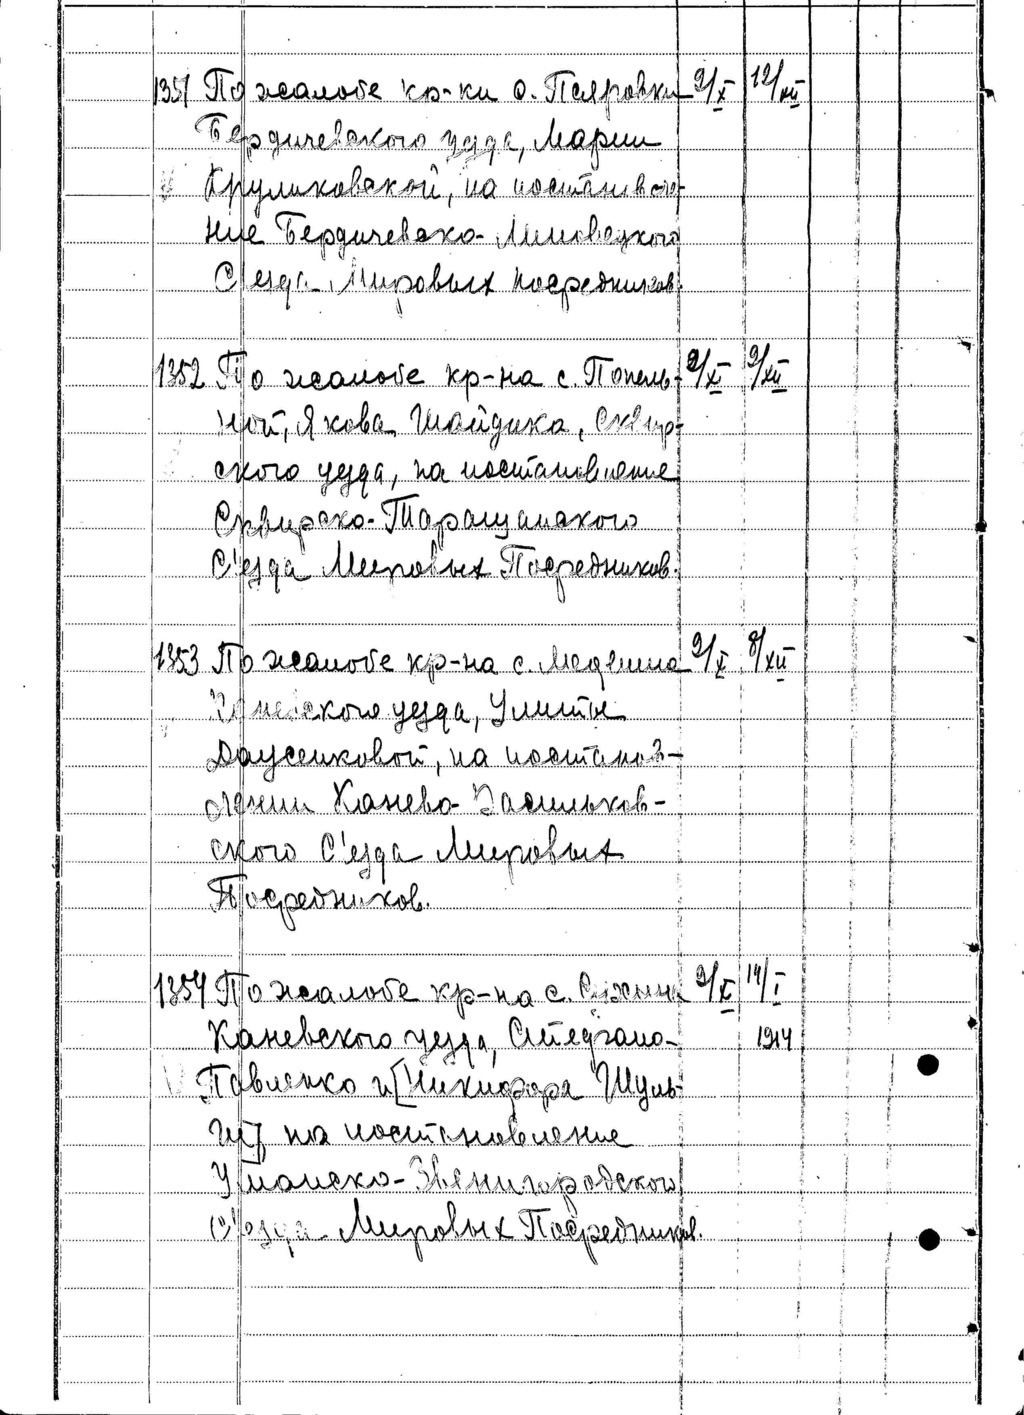 1351 По жалобе кр-ки с. Пляровки 9/X 12/XII
Бердичевского уезда, Марии
Круликовской, на постановле-
ние Бердичевско-Липовецкого
С'езда Мировых посредников.
1352 По жалобе кр-на с. Попель- 9/X 9/XII
ной, Якова Шайдюка, Сквир-
ского уезда, на постановление
Сквирско-Таращанского
С'езда Мировых Посредников.
1353 По жалобе кр-на с. Медвина 9/X 8/XII
Каневского уезда, Улиты
на постанов-
лении Канево-Васильков-
ского С'езда Мировых
Посредников.
1354 По жалобе кр-на с. 9/X 14/I
Каневского уезда, 1914
Павленко и [Никифора Шуль-
ги] на постановление
Уманско-Звенигородского
С'езда Мировых Посредников.